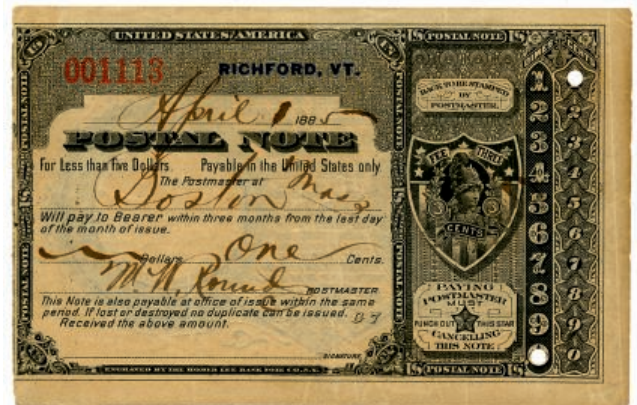 UNITED STATES AMERICA
POSTAL NOTE
001113
RICHFORD, VT.
April 1 1885
POSTAL NOTE
For Less than Five Dollars Payable in the United States only
The Postmaster at
Boston Mass
Will pay to Bearer within three months from the last day
of the month of issue.
Dollars One Cents.
POSTMASTER
This Note is also payable at office of issue within the same
period. If lost or destroyed no duplicate can be issued.
Received the above amount.
SIGNATURE
ENGRAVED BY THE HOMER LEE BANK NOTE CO. N.Y.
POSTAL NOTE
POSTAL NOTE
POSTAL NOTE
BACK TO BE STAMPED
BY
POSTMASTER.
FEE THREE
3 3
CENTS
PAYING
POSTMASTER
MUST
PUNCH OUT THIS STAR
CANCELLING
THIS NOTE
POSTAL NOTE
1
2 2
3 3
4 4
5 5
6 6
7 7
8 8
9 9
0